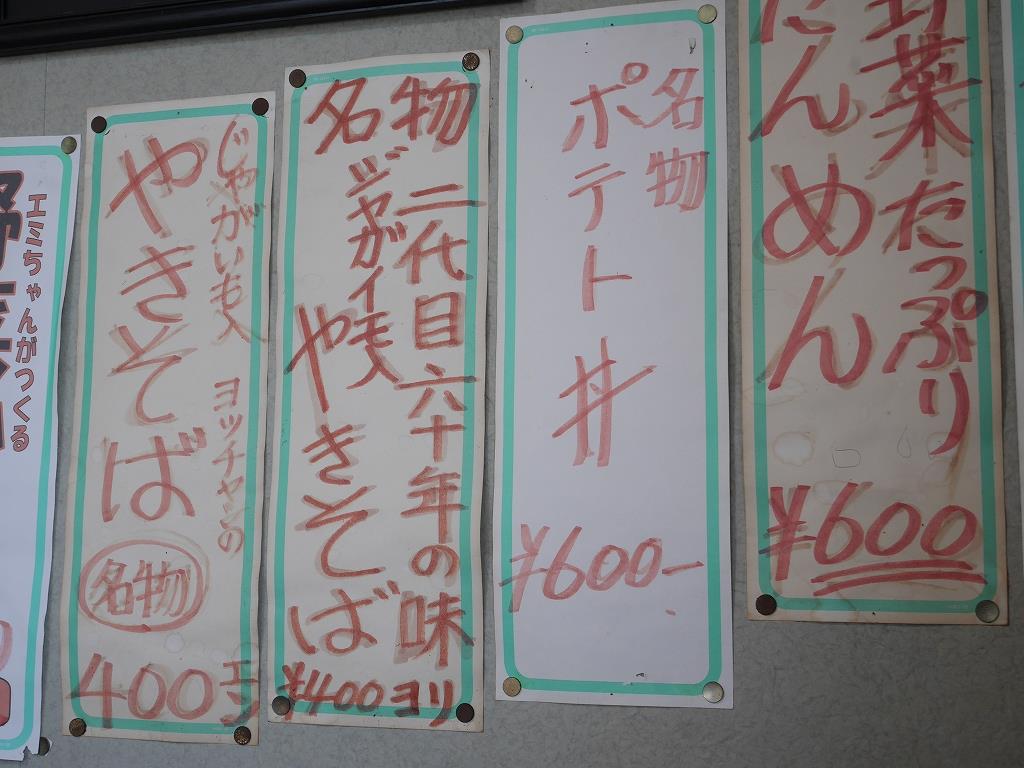 野菜たっぷり
たんめん
¥600
名物
ポテト丼
¥600-
名物
二代目六十年の味
ジャガイモ入
やきそば
¥400ヨリ
じゃがいも入 ヨッチャンの
やきそば
名物
400エン
エミちゃんがつくる